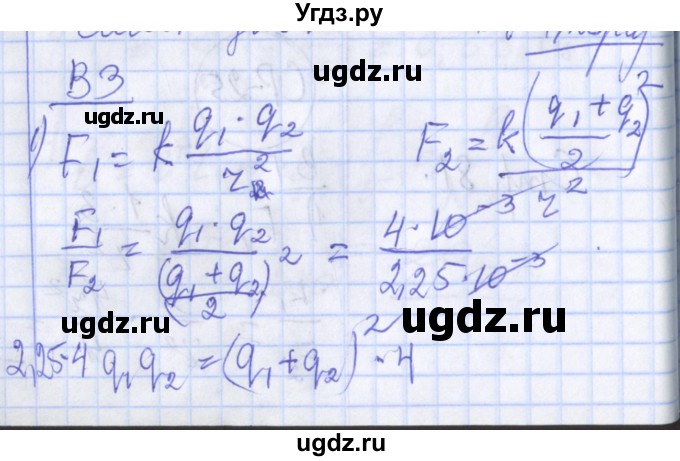 Угдз.ру
ugdz.ru
В3
ugdz.ru
1) F₁ = k (q₁ · q₂)/r²   F₂ = k ((q₁ + q₂)/2)²/r²
ugdz.ru
F₁/F₂ = (q₁ · q₂)/((q₁ + q₂)/2)² = (4 · 10⁻³)/(2,25 · 10⁻³)
ugdz.ru ugdz.ru
2,25·4 q₁ q₂ = (q₁ + q₂)² · 4
ugdz.ru
ugdz.ru